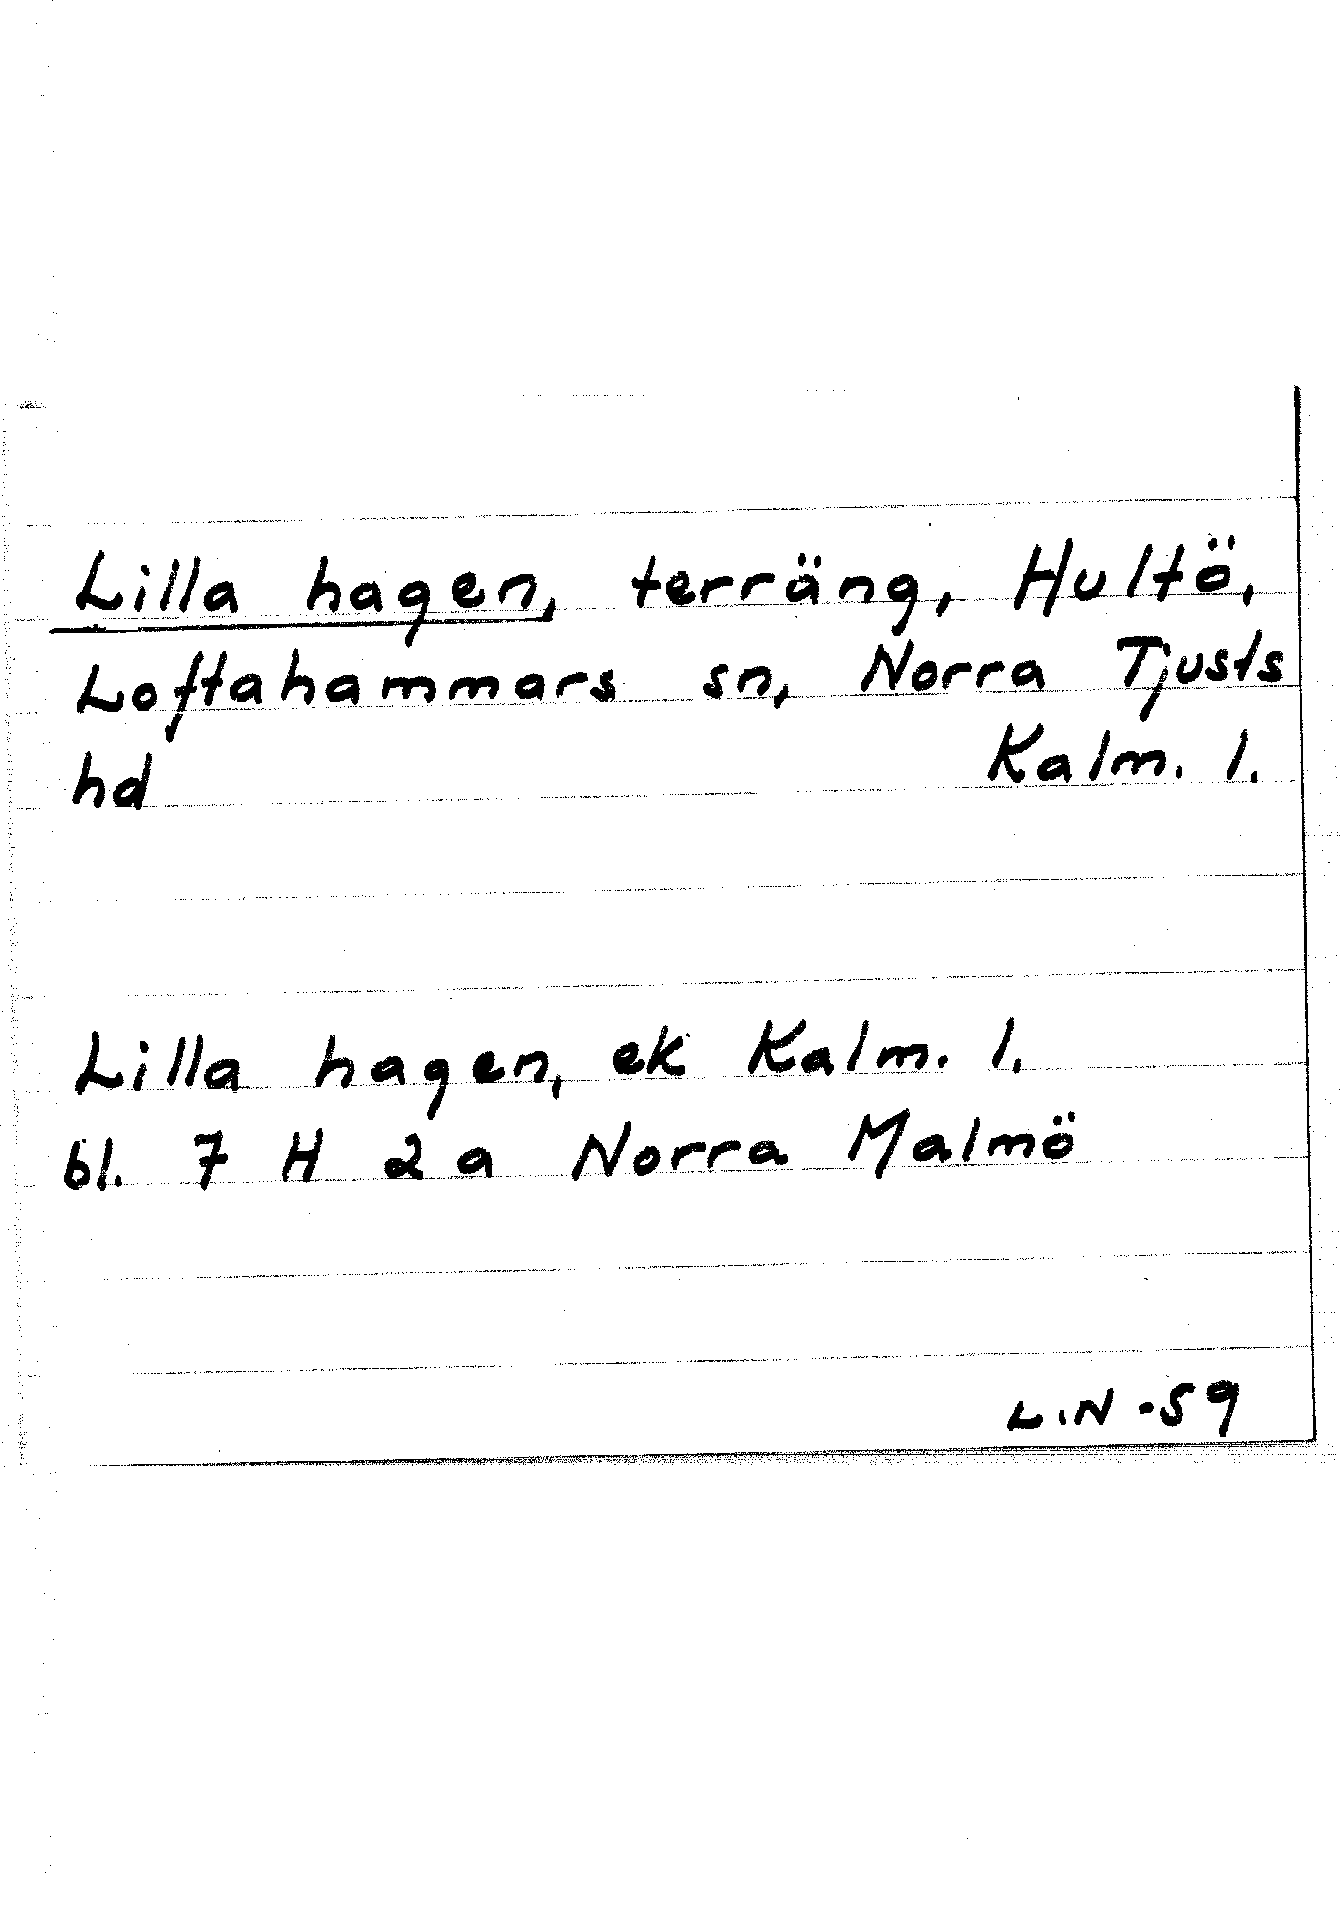 Lilla hagen, terräng, Hultö,
Loftahammars sn, Norra Tjusts
hd Kalm. l.
Lilla hagen, ek Kalm. l.
bl. 7 H 2 a Norra Malmö
LiN -59